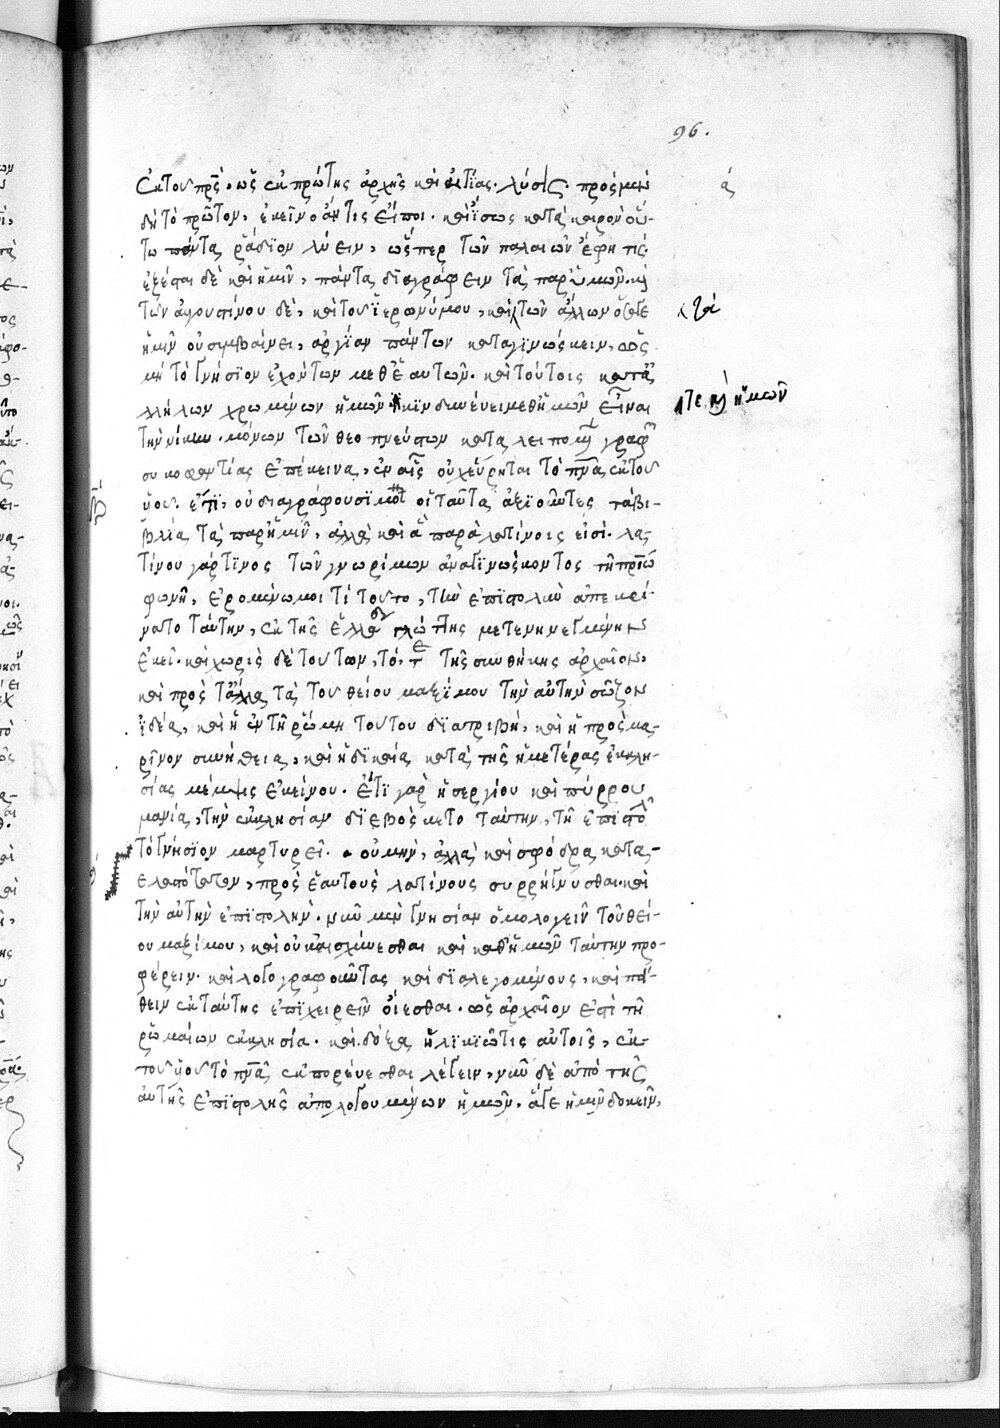 96.
ἐκ τοῦ πρς, ὡς ἐκ πρώτης ἀρχῆς καὶ αἰτίας. λύσις. πρὸς μὲν
ά
δὴ τὸ πρῶτον, ἐκεῖνο ἄν τις εἴποι. καὶ ἴσως κατὰ καιρὸν οὕ-
τω πάντα ῥάδιον λύειν, ὥσπερ τῶν παλαιῶν ἔφη τίς
ἐξέσται δὲ καὶ ἡμῖν, πάντα διαγράφειν τὰ παρ' ὑμῶν. καὶ
τῶν αὐγουστίνου δὲ, καὶ τοῦ ἱερωνύμου, καὶ τῶν ἄλλων
τὰ
ἡμῖν οὐ συμβαίνει, ἀργίαν πάντων καταγινώσκειν, ὡς
μὴ τὸ γνήσιον ἐχόντων μεθ' ἑαυτῶν. καὶ τούτοις κατὰ
λλήλων χρωμένων ἡμῶν μεθ' ἡμῶν εἶναι
τε καὶ ἡμῶν
τὴν νίκην. μόνων τῶν θεοπνεύστων καταλειπομ γραφ
συκοφαντίας ἐπέκεινα, ἐν αἷς οὐχ εὕρηται τὸ πνα ἐκ τοῦ
υοῦ. ἔτι, οὐ διαγράφουσι οἱ ταῦτα ἀξιοῦντες τὰ βι-
βλία τὰ παρ' ἡμῖν, ἀλλὰ καὶ ἃ παρὰ λατίνοις εἰσί. λα-
τίνου γάρ τινος τῶν γνωρίμων ἀναγινώσκοντος τῇ
φωνῇ, ἐρομένω μοι τί τοῦτο, τὴν ἐπιστολὴν ἀπεκρί-
νατο ταύτην, ἐκ τῆς ἑλλα γλώττης μετενηνεγμένην
ἐκεῖ. καὶ χωρὶς δὲ τούτων, τό, τε τῆς συνθήκης ἀρχαῖον,
καὶ πρὸς τἄλλα τὰ τοῦ θείου μαξίμου τὴν αὐτὴν σῶζον
ἰδέα, καὶ ἡ ἐν τῇ ῥώμη τούτου διατριβή, καὶ ἡ πρὸς μα-
ρῖνον συνήθεια, καὶ ἡ δικαία κατὰ τῆς ἡμετέρας ἐκκλη-
σίας μέμψις ἐκείνου. ἔτι γὰρ ἡ σεργίου καὶ πύρρου
μανία, τὴν ἐκκλησίαν διεβόσκετο ταύτην, τῇ ἐπιστολ
τὸ γνήσιον μαρτυρεῖ. οὐ μὴν, ἀλλὰ καὶ σφόδρα κατα-
γελαστότατον, πρὸς ἑαυτοὺς λατίνους συρρήγνυσθαι. καὶ
τὴν αὐτὴν ἐπιστολήν. νῦν μὲν γνησίαν ὁμολογεῖν τοῦ θεί-
ου μαξίμου, καὶ οὐκ αἰσχύνεσθαι καὶ καθ' ἡμῶν ταύτην προ-
φέρειν. καὶ λογογραφοῦντας καὶ διαλεγομένους, καὶ πεί-
θειν ἐκ ταύτης ἐπιχειρεῖν οἴεσθαι. ὡς ἀρχαῖον ἐστὶ τῇ
ῥωμαίων ἐκκλησία. καὶ δόξα ἡλικιῶτις αὐτοῖς, ἐκ
τοῦ υοῦ τὸ πνα ἐκπορεύεσθαι λέγειν, νῦν δὲ ἀπὸ τῆς
αὐτῆς ἐπιστολῆς ἀπολογουμένων ἡμῶν. ἅγε ἡμῖν δοκεῖν,